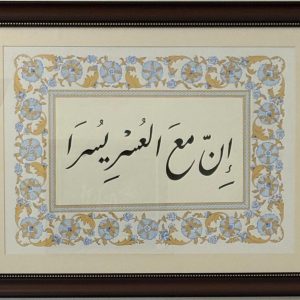 إنّ معَ العُسْرِ يسرَا